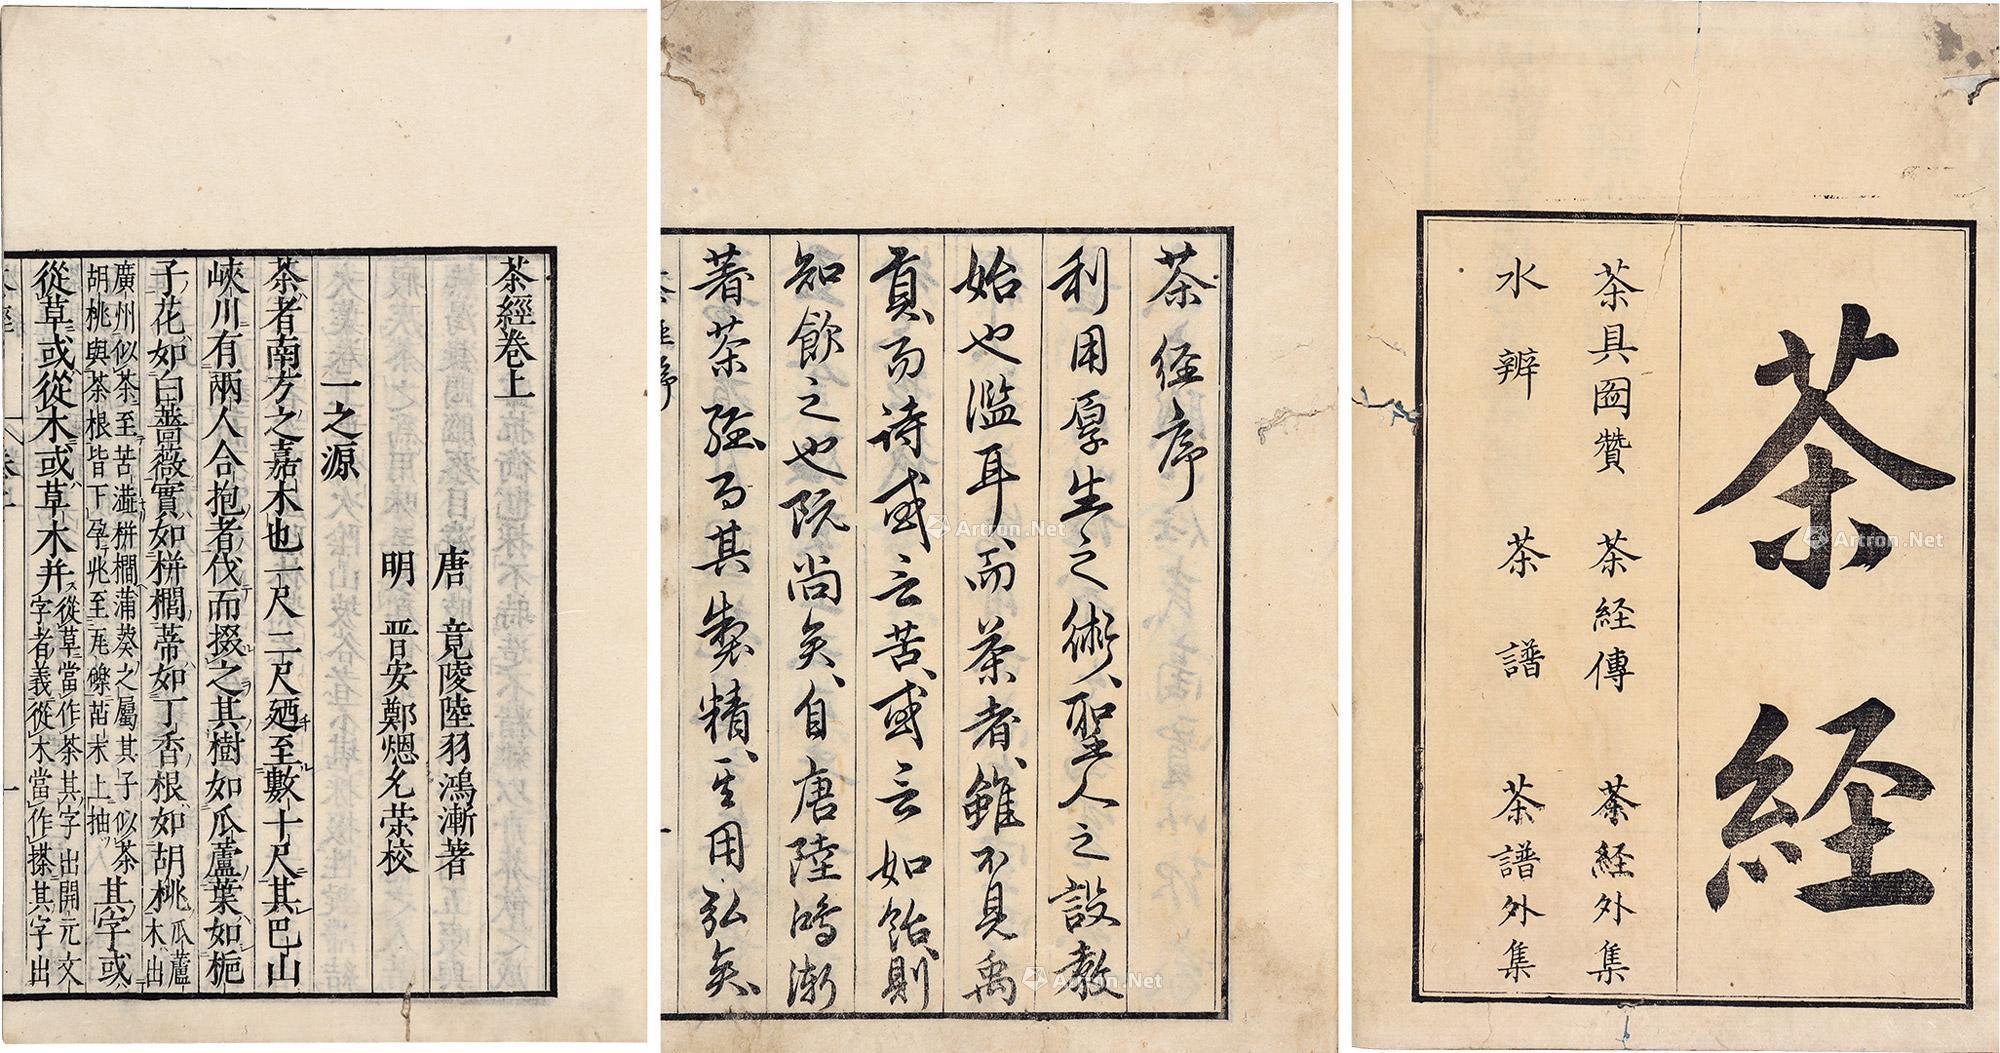 茶経
茶具図贊 茶経傳 茶経外集
水辨 茶譜 茶譜外集
茶經序
利用厚生之術、聖人之設教
始也濫耳、而茶者、雖不見禹
貢、而詩或言苦、或言如飴、則
知飲之也既尚矣、自唐陸鴻漸
著茶經而其製精、其用弘矣、
茶經序
一
茶經卷上
唐 竟陵陸羽鴻漸著
明 晉安鄭熜允榮校
一之源
茶者南方之嘉木也一尺二尺廼至數十尺其巴山
峽川有兩人合抱者伐而掇之其樹如瓜蘆葉如梔
子花如白薔薇實如栟櫚蒂如丁香根如胡桃瓜蘆木出
廣州似茶至苦澁栟櫚蒲葵之屬其子似茶
胡桃與茶根皆下孕兆至瓦礫苗木上抽其字或
從草或從木或草木并從草當作茶其字出開元文
字者義從木當作搽其字出
一
Artron.Net
Artron.Net
Artron.Net